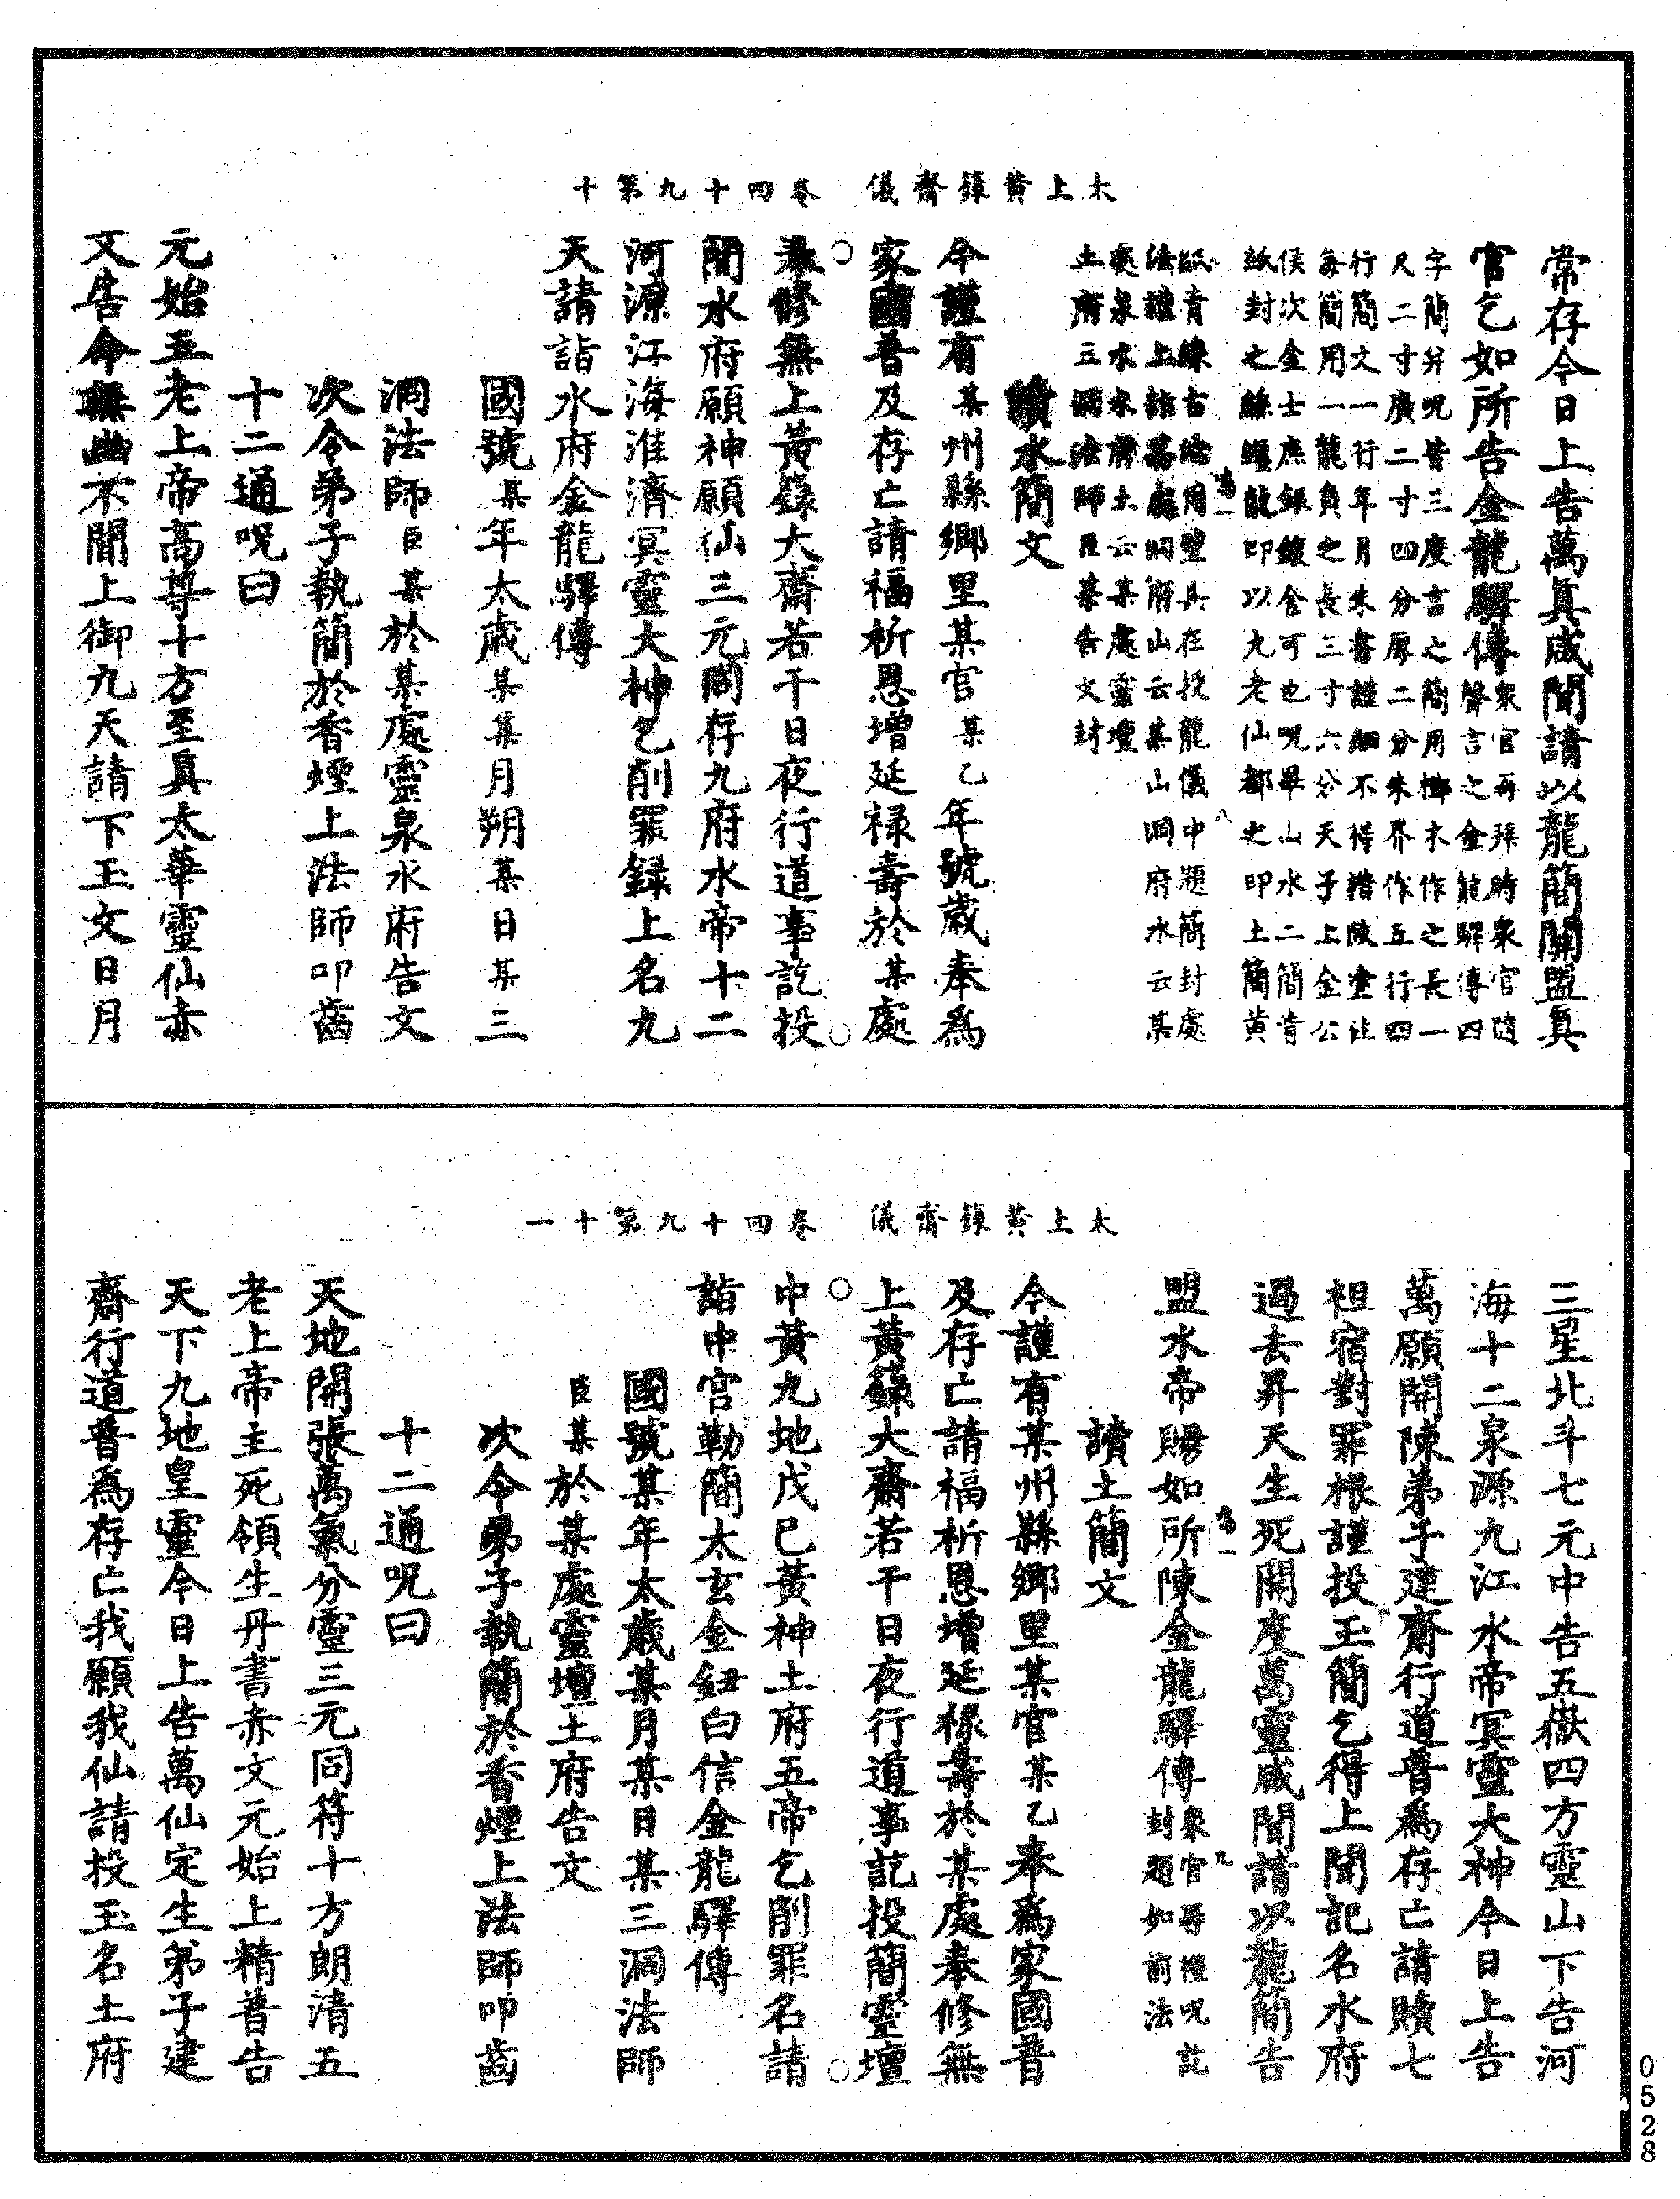 太上黃籙齋儀　卷四十九第十
常存今日上告萬真咸聞請以龍簡關盟真
官乞如所告金龍驛傳衆官再拜時衆官隨
聲言之金龍驛傳四
字簡并呪皆三度言之簡用槨木作之長一
尺二寸廣二寸四分厚二分朱界作五行四
行簡文一行年月朱書謹細不得揩陝塗注
每簡用一龍負之長三寸六分天子上金公
侯次金士庶銀鍍金可也呪畢山水二簡青
紙封之絲纏訖印以九老仙都之印土簡黃
紙青絲古法用璧具在投龍儀中題簡封處
法謹上詣某處洞府山云某山洞府水云某
處泉水水府土云某處靈壇
土府三洞法師臣某告文封
讀水簡文
今謹有某州縣鄉里某官某乙年號歲奉爲
家國普及存亡請福祈恩增延祿壽於某處
奉修無上黃籙大齋若干日夜行道事訖投
簡水府願神願仙三元同存九府水帝十二
河源江海淮濟冥靈大神乞削罪錄上名九
天請詣水府金龍驛傳
國號某年太歲某某月朔某日某三
洞法師臣某於某處靈泉水府告文
次令弟子執簡於香煙上法師叩齒
十二通呪曰
元始五老上帝高尊十方至真太華靈仙赤
文告命無幽不聞上御九天請下玉文日月
太上黃籙齋儀　卷四十九第十一
三星北斗七元中告五嶽四方靈山下告河
海十二泉源九江水帝冥靈大神今日上告
萬願開陳弟子建齋行道普爲存亡請贖七
祖宿對罪根謹投玉簡乞得上聞記名水府
過去昇天生死開度萬靈咸聞請以龍簡告
盟水帝賜如所陳金龍驛傳衆官再禮呪訖
封題如前法
讀土簡文
今謹有某州縣鄉里某官某乙奉爲家國普
及存亡請福祈恩增延祿壽於某處奉修無
上黃籙大齋若干日夜行道事訖投簡靈壇
中黃九地戊己黃神土府五帝乞削罪名請
詣中宮勒簡太玄金鈕白信金龍驛傳
國號某年太歲某月某日某三洞法師
臣某於某處靈壇土府告文
次令弟子執簡於香煙上法師叩齒
十二通呪曰
天地開張萬氣分靈三元同符十方朗清五
老上帝主死領生丹書赤文元始上精普告
天下九地皇靈今日上告萬仙定生弟子建
齋行道普爲存亡我願我仙請投玉名土府
0528